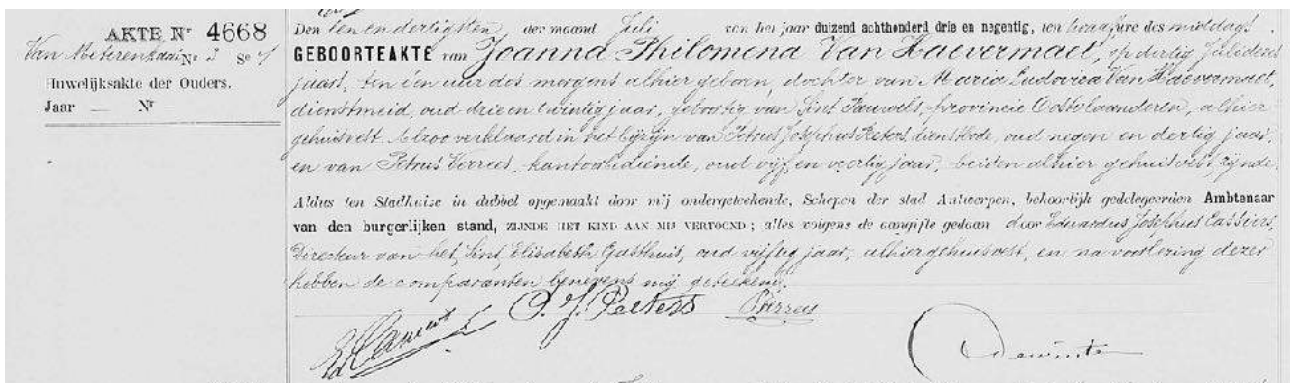 AKTE Nr 4668
Nr 3 Se 7
Huwelijksakte der Ouders.
Jaar — Nr
Den een en dertigsten der maand Juli van het jaar duizend achthonderd drie en negentig, ten twaalf ure des middags
GEBOORTEAKTE van Joanna Philomena Van Haevermaet, op dertig Juli dezes
jaars, ten één uur des morgens alhier geboren, dochter van Maria Ludovica Van Haevermaet,
dienstmeid, oud drie en twintig jaar, geboortig van Sint Pauwels, provincie Oostvlaanderen, alhier
gehuisvest. Alzoo verklaard in het bijzijn van Petrus Josephus Peeters, dienstbode, oud negen en dertig jaar,
en van Petrus Verrees, kantoorbediende, oud vijf en veertig jaar, beiden alhier gehuisvest, zijnde
Aldus ten Stadhuize in dubbel opgemaakt door mij ondergeteekende, Schepen der stad Antwerpen, behoorlijk gedelegeerden Ambtenaar
van den burgerlijken stand, ZIJNDE HET KIND AAN MIJ VERTOOND; alles volgens de aangifte gedaan door Eduardus Josephus Cassiers,
Directeur van het Sint Elisabeth Gasthuis, oud vijftig jaar, alhier gehuisvest, en na voorlezing dezer
hebben de comparanten benevens mij geteekend.
P. J. Peeters